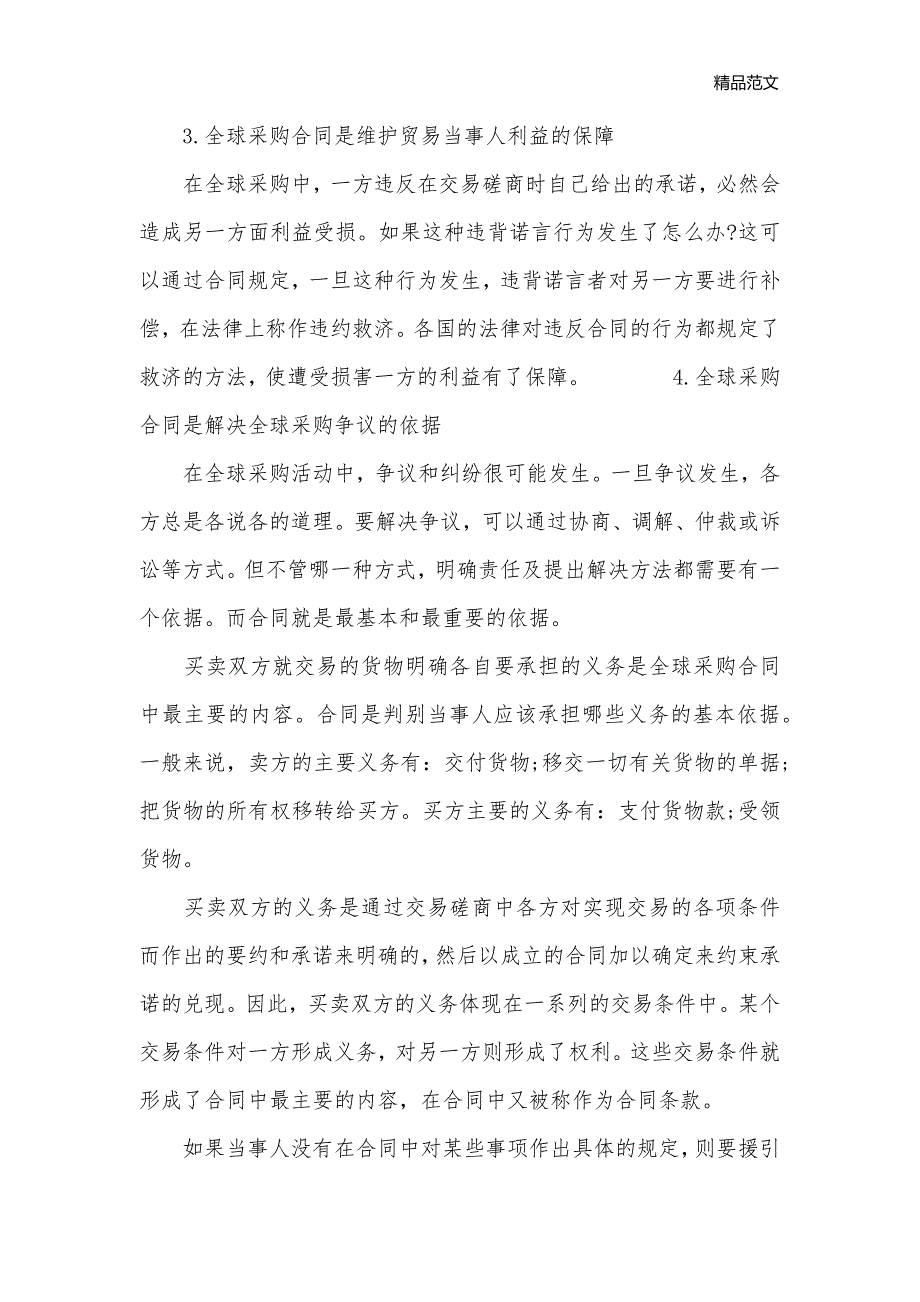 精品范文
3.全球采购合同是维护贸易当事人利益的保障
在全球采购中，一方违反在交易磋商时自己给出的承诺，必然会
造成另一方面利益受损。如果这种违背诺言行为发生了怎么办?这可
以通过合同规定，一旦这种行为发生，违背诺言者对另一方要进行补
偿，在法律上称作违约救济。各国的法律对违反合同的行为都规定了
救济的方法，使遭受损害一方的利益有了保障。 4.全球采购
合同是解决全球采购争议的依据
在全球采购活动中，争议和纠纷很可能发生。一旦争议发生，各
方总是各说各的道理。要解决争议，可以通过协商、调解、仲裁或诉
讼等方式。但不管哪一种方式，明确责任及提出解决方法都需要有一
个依据。而合同就是最基本和最重要的依据。
买卖双方就交易的货物明确各自要承担的义务是全球采购合同
中最主要的内容。合同是判别当事人应该承担哪些义务的基本依据。
一般来说，卖方的主要义务有：交付货物;移交一切有关货物的单据;
把货物的所有权移转给买方。买方主要的义务有：支付货物款;受领
货物。
买卖双方的义务是通过交易磋商中各方对实现交易的各项条件
而作出的要约和承诺来明确的，然后以成立的合同加以确定来约束承
诺的兑现。因此，买卖双方的义务体现在一系列的交易条件中。某个
交易条件对一方形成义务，对另一方则形成了权利。这些交易条件就
形成了合同中最主要的内容，在合同中又被称作为合同条款。
如果当事人没有在合同中对某些事项作出具体的规定，则要援引